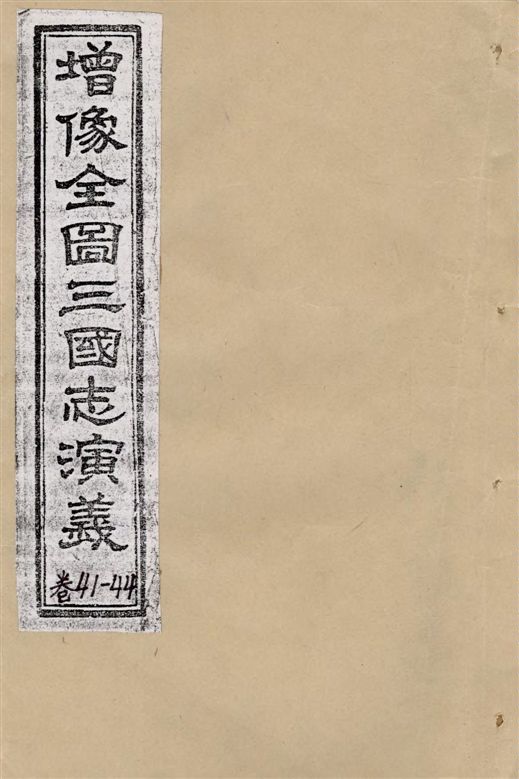 增像全圖三國志演義
卷41-44